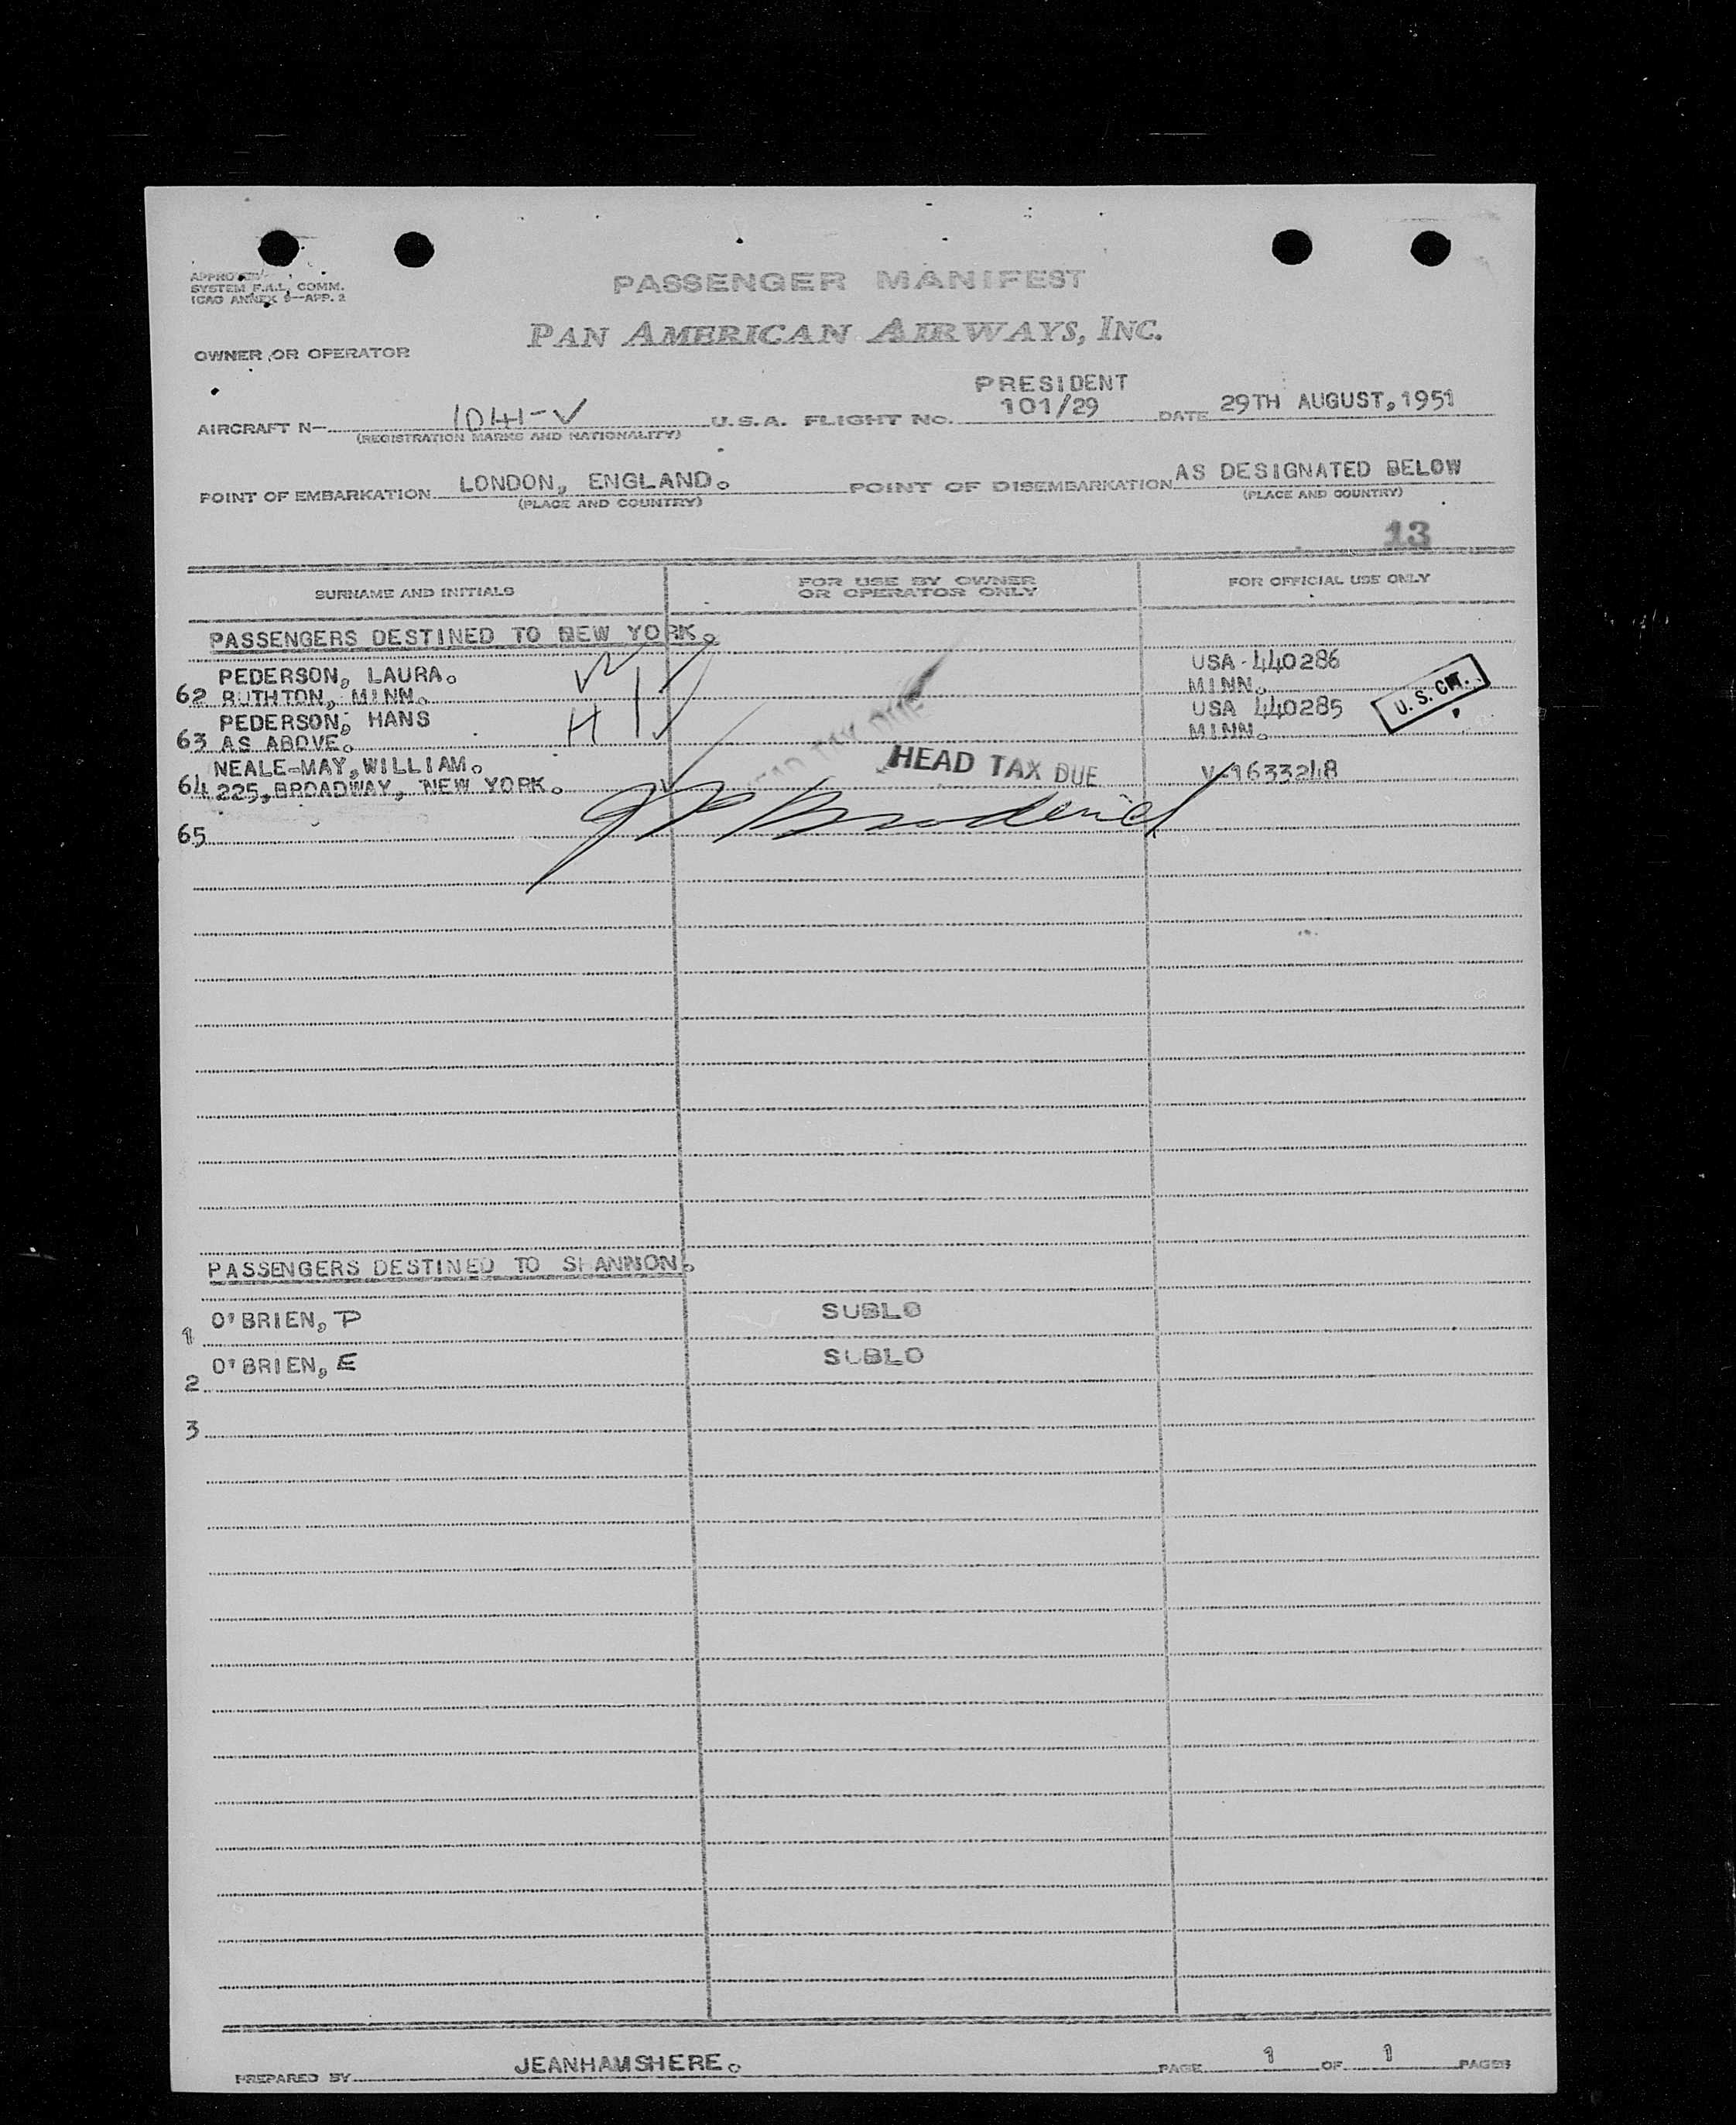 APPROVED
SYSTEM F.A.L. COMM.
ICAO ANNEX 9—APP. 2
PASSENGER MANIFEST
PAN AMERICAN AIRWAYS, INC.
OWNER OR OPERATOR
PRESIDENT
AIRCRAFT N— 1041-V U.S.A. FLIGHT NO. 101/29 DATE 29TH AUGUST, 1951
(REGISTRATION MARKS AND NATIONALITY)
POINT OF EMBARKATION LONDON, ENGLAND. POINT OF DISEMBARKATION AS DESIGNATED BELOW
(PLACE AND COUNTRY) (PLACE AND COUNTRY)
13
SURNAME AND INITIALS FOR USE BY OWNER OR OPERATOR ONLY FOR OFFICIAL USE ONLY
PASSENGERS DESTINED TO NEW YORK.
PEDERSON, LAURA. USA-440286
62 RUTHTON, MINN. MINN.
PEDERSON, HANS USA 440285 U.S. CIT.
63 AS ABOVE. H MINN.
HEAD TAX DUE
NEALE-MAY, WILLIAM. HEAD TAX DUE V-1633248
64 225, BROADWAY, NEW YORK.
65
PASSENGERS DESTINED TO SHANNON.
O'BRIEN, P SUBLO
1
O'BRIEN, E SUBLO
2
3
PREPARED BY JEANHAMSHERE. PAGE 1 OF 1 PAGES